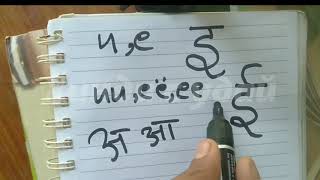 и, е इ
ии, её, ее ई
अ आ